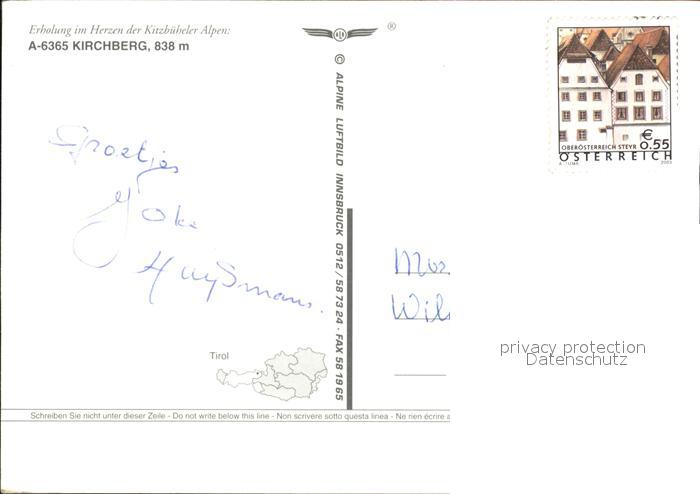 Erholung im Herzen der Kitzbüheler Alpen:
A-6365 KIRCHBERG, 838 m
®
© ALPINE LUFTBILD INNSBRUCK 0512 / 58 73 24 · FAX 58 19 65
€
0.55
OBERÖSTERREICH STEYR
ÖSTERREICH
2003
Groetjes
Joke
Huijsmans.
Mos
Wils
privacy protection
Datenschutz
Tirol
Schreiben Sie nicht unter dieser Zeile - Do not write below this line - Non scrivere sotto questa linea - Ne rien écrire a